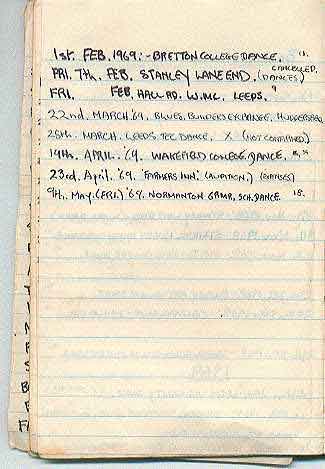 1st. FEB. 1969:- BRETTON COLLEGE DANCE.
FRI. 7th. FEB. STANLEY LANE END. (DANCES) CANCELLED
FRI. FEB. HALL RD. W.M.C. LEEDS.
22nd. MARCH '69. BLUES, BUILDERS EXCHANGE, HUDDERSFIELD
28th. MARCH. LEEDS TEC. DANCE. X (NOT CONFIRMED)
19th. APRIL. '69. WAKEFIELD COLLEGE. DANCE.
23rd. April. '69. 'FARMERS INN'. (AUDITION.)
9th. May. (FRI.) '69. NORMANTON GRMR. SCH. DANCE 18.